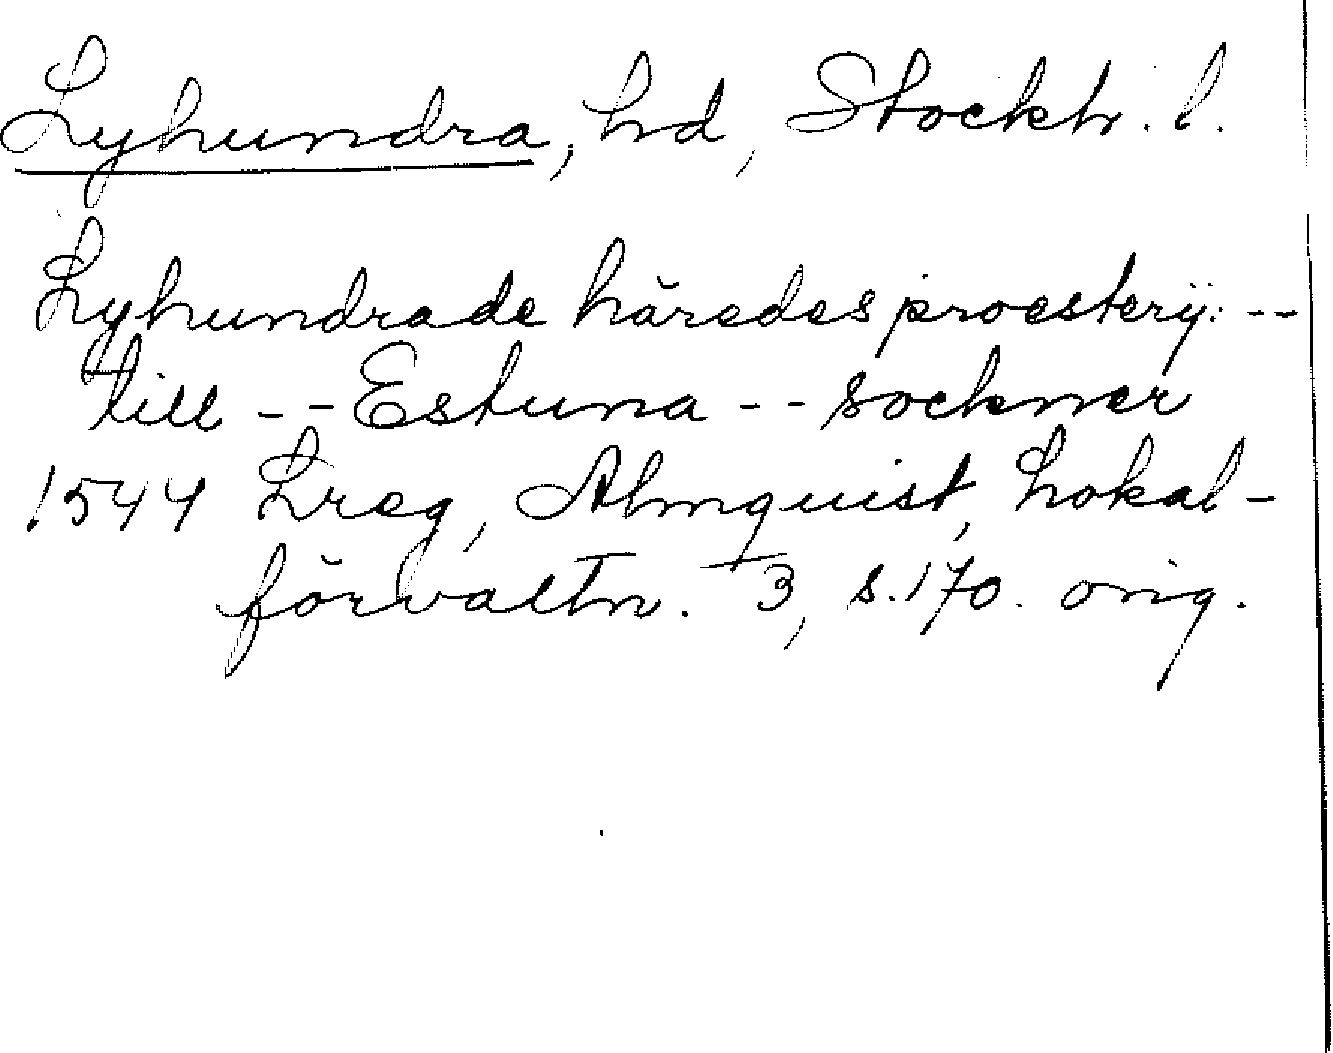 Lyhundra, hd, Stockh. l.
Lyhundrade häredes proesterij: --
till -- Estuna -- sockner
1544 Lreg, Almquist, Lokal-
förvaltn. 3, s. 170. orig.